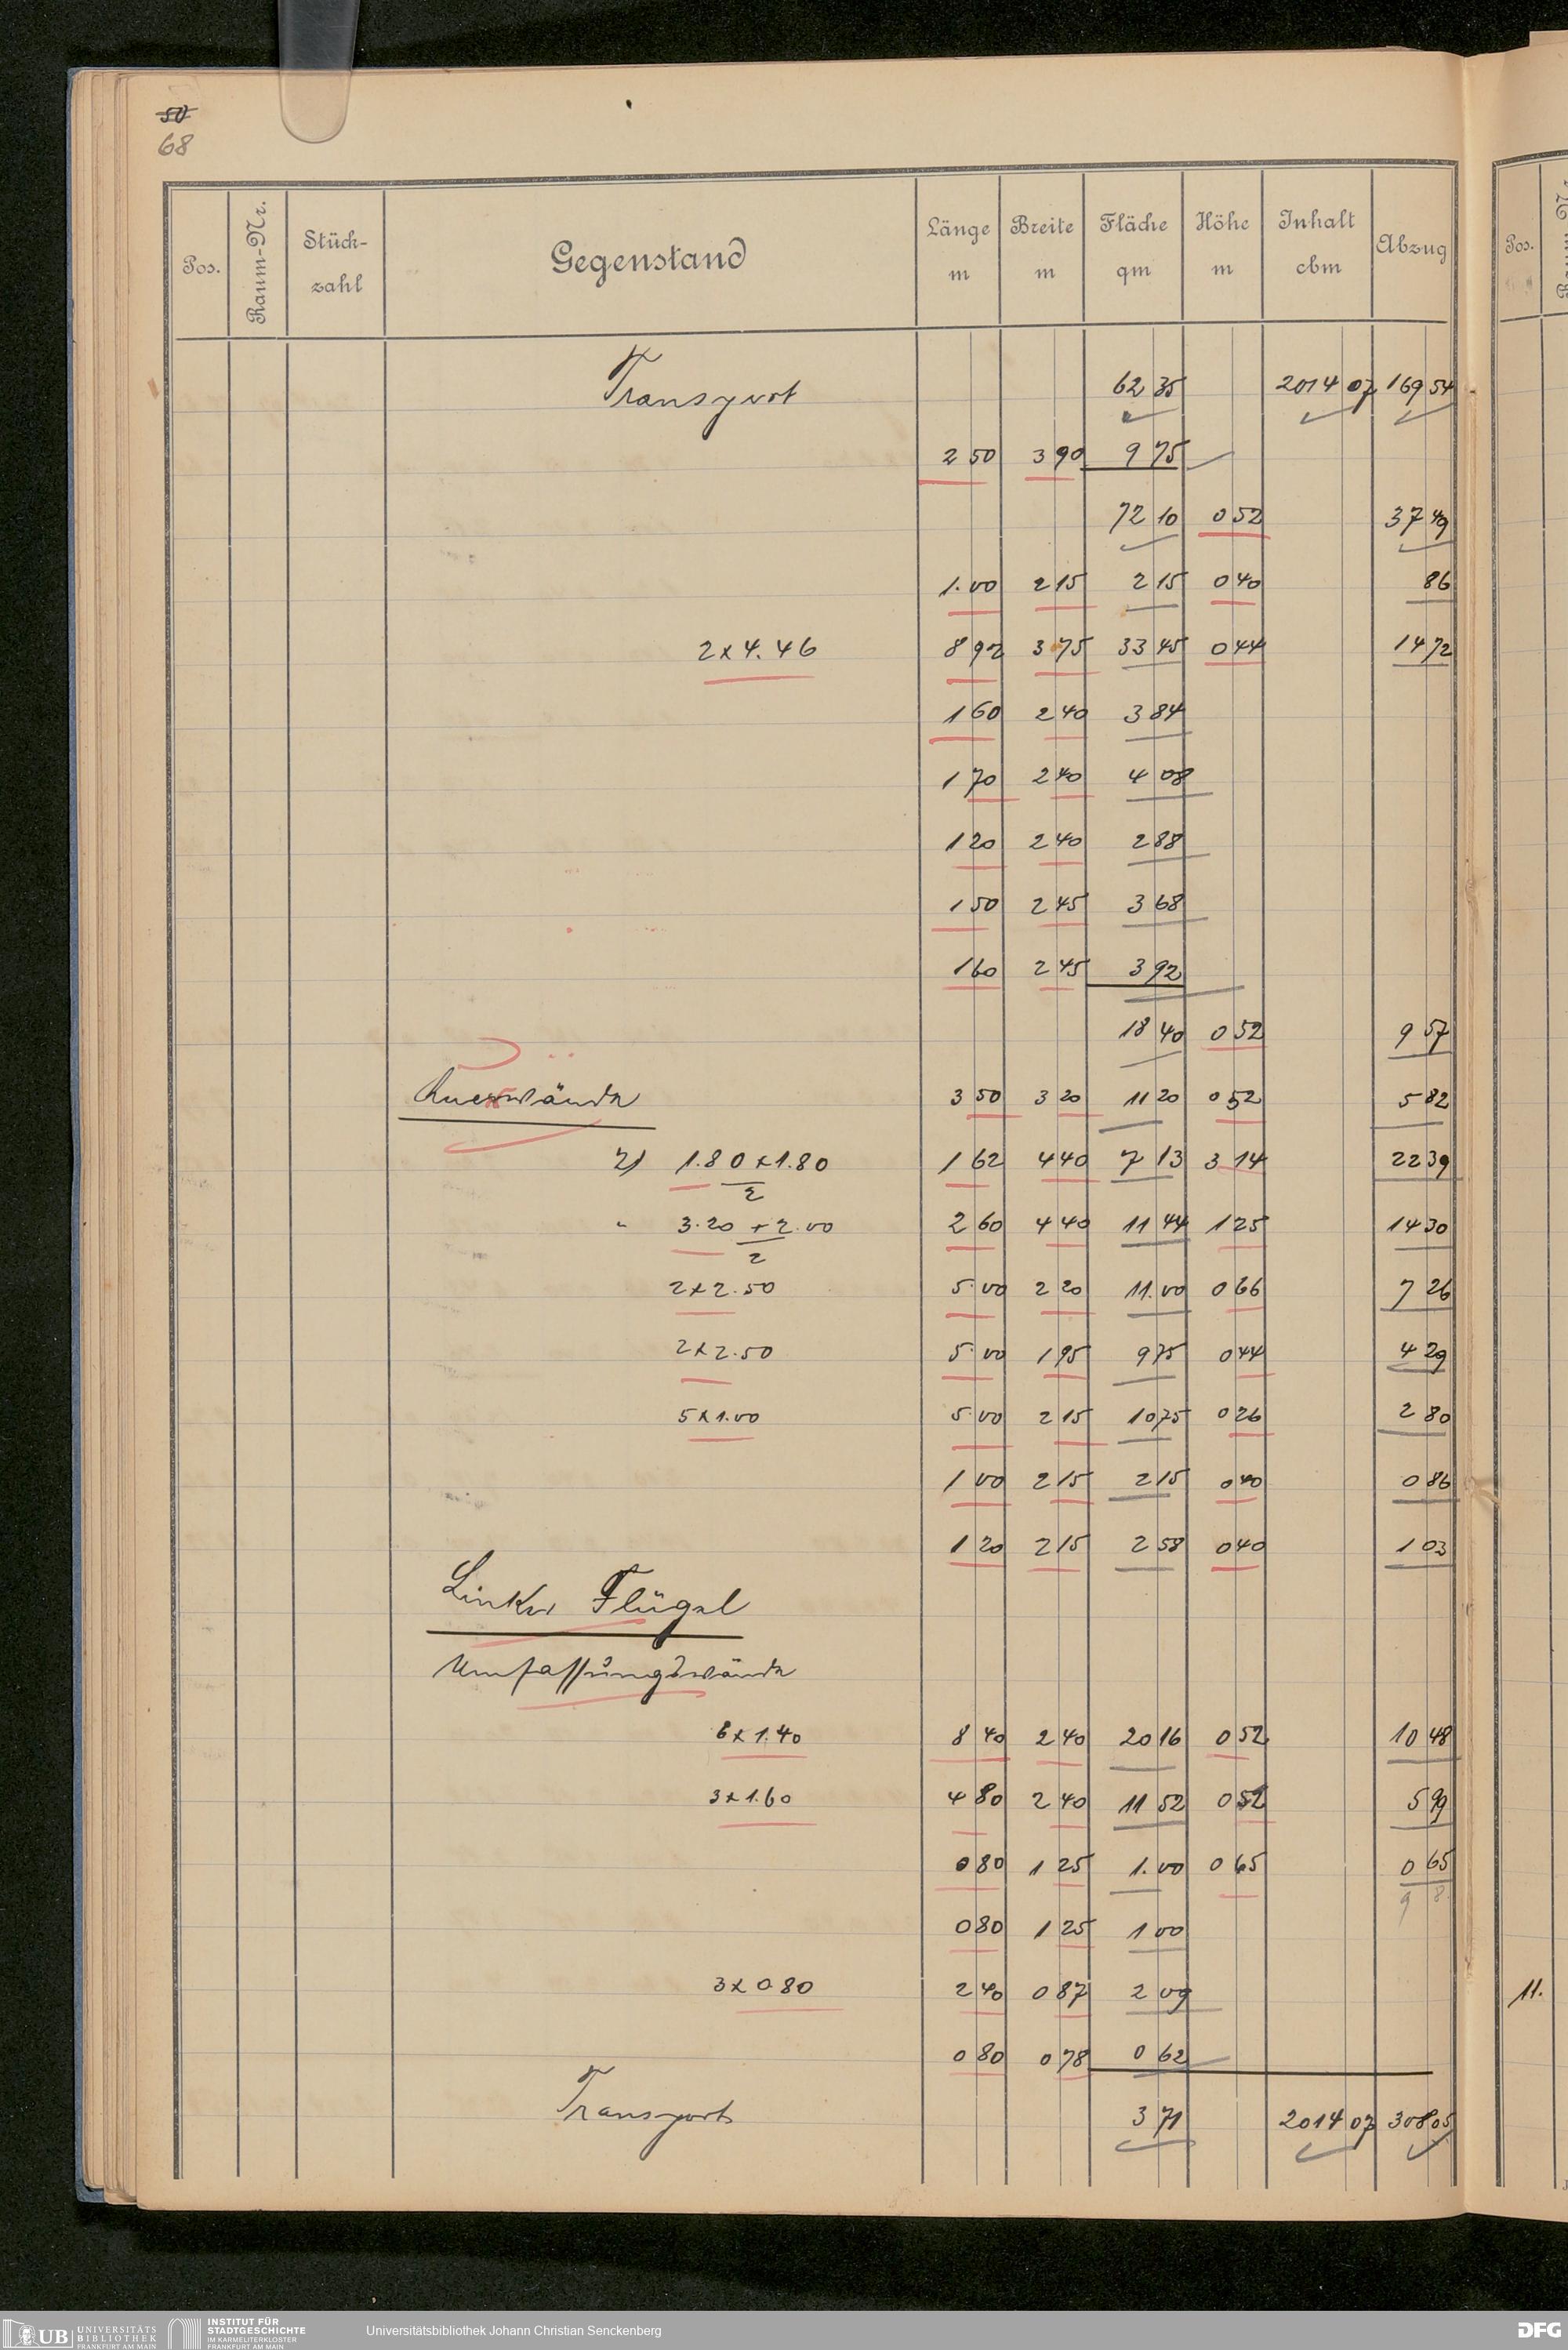 50
68
Pos. Raum-Nr. Stückzahl Gegenstand Länge m Breite m Fläche qm Höhe m Inhalt cbm Abzug
Transport 62 35 2014 07 169 54
2 50 3 90 9 75
72 10 0 52 37 49
1.00 2 15 2 15 0 40 86
2 x 4.46 8 92 3 75 33 45 0 44 14 72
1 60 2 40 3 84
1 70 2 40 4 08
1 20 2 40 2 88
1 50 2 45 3 68
1 60 2 45 3 92
18 40 0 52 9 57
Querwände 3 50 3 20 11 20 0 52 5 82
2) 1.80 x 1.80 1 62 4 40 7 13 3 14 22 39
2
" 3.20 + 2.00 2 60 4 40 11 44 1 25 14 30
2
2 x 2.50 5.00 2 20 11.00 0 66 7 26
2 x 2.50 5.00 1 95 9 75 0 44 4 29
5 x 1.00 5.00 2 15 10 75 0 26 2 80
1 00 2 15 2 15 0 40 0 86
1 20 2 15 2 58 0 40 1 03
Linker Flügel
Umfassungswände
6 x 1.40 8 40 2 40 20 16 0 52 10 48
3 x 1.60 4 80 2 40 11 52 0 52 5 99
0 80 1 25 1.00 0 65 0 65
9 8.
0 80 1 25 1 00
3 x 0 80 2 40 0 87 2 09
0 80 0 78 0 62
Transport 3 71 2014 07 308 05
Pos.
11.
UB UNIVERSITÄTS BIBLIOTHEK FRANKFURT AM MAIN
INSTITUT FÜR STADTGESCHICHTE IM KARMELITERKLOSTER FRANKFURT AM MAIN
Universitätsbibliothek Johann Christian Senckenberg
DFG